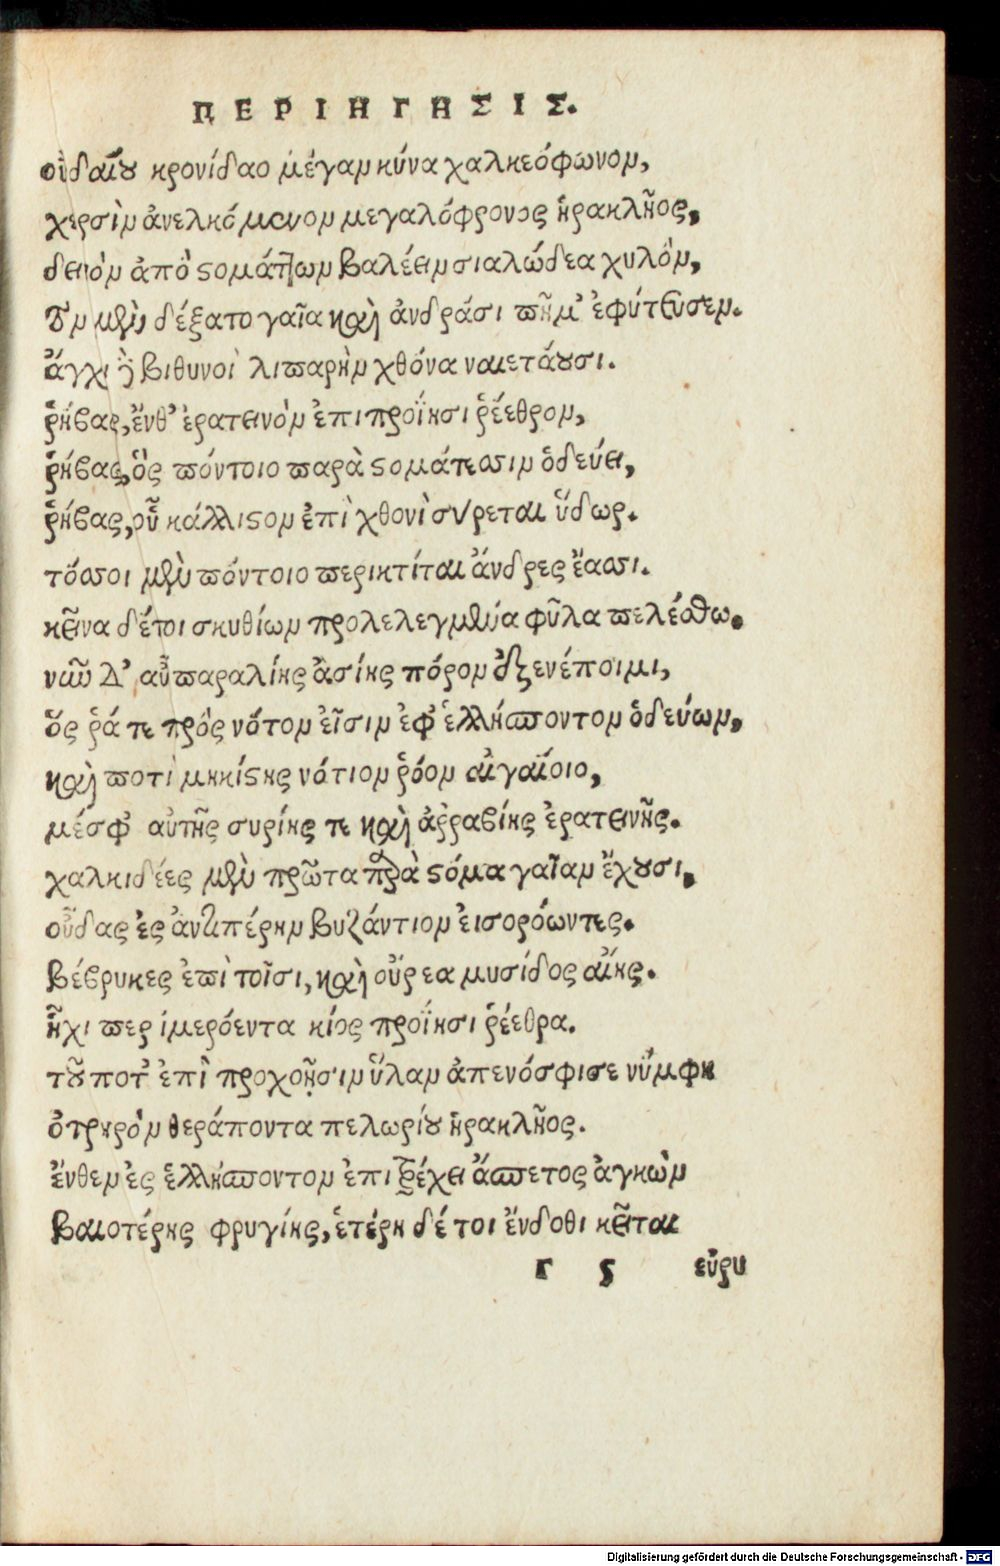 ΠΕΡΙΗΓΗΣΙΣ.
οὐδαίου κρονίδαο μέγαν κύνα χαλκεόφωνον,
χερσὶν ἀνελκόμενον μεγαλόφρονος ἡρακλῆος,
δεινὸν ἀπὸ στομάτων βαλέειν σιαλώδεα χυλὸν,
τὸν μὲν δέξατο γαῖα καὶ ἀνδράσι πῆμ' ἐφύτευσεν.
ἄγχι δὲ βιθυνοὶ λιπαρὴν χθόνα ναιετάουσι.
ῥήβας, ἔνθ' ἐρατεινὸν ἐπιπροΐησι ῥέεθρον,
ῥήβας, ὃς πόντοιο παρὰ στομάτεσσιν ὁδεύει,
ῥήβας, οὗ κάλλιστον ἐπὶ χθονὶ σύρεται ὕδωρ.
τόσσοι μὲν πόντοιο περικτίται ἄνδρες ἔασσι.
κεῖνα δέ τοι σκυθίων προλελεγμένα φῦλα πελέσθω.
νῦν Δ' αὖ παραλίης ἀσίης πόρον ἐξενέποιμι,
ὅς ῥά τε πρὸς νότον εἶσιν ἐφ' ἑλλήσποντον ὁδεύων,
καὶ ποτὶ μηκίστης νότιον ῥόον αἰγαίοιο,
μέσφ' αὐτῆς συρίης τε καὶ ἀῤῥαβίης ἐρατεινῆς.
χαλκιδέες μὲν πρῶτα παρὰ στόμα γαῖαν ἔχουσι,
οὖδας ἐς ἀντιπέρην βυζάντιον εἰσορόωντες.
βέβρυκες ἐπὶ τοῖσι, καὶ οὔρεα μυσίδος αἴης.
ᾗχι περ ἱμερόεντα κίος προΐησι ῥέεθρα.
τοῦ ποτ' ἐπὶ προχοῇσιν ὕλαν ἀπενόσφισε νύμφη
ὀτρηρὸν θεράποντα πελωρίου ἡρακλῆος.
ἔνθεν ἐς ἑλλήσποντον ἐπιτρέχει ἄσπετος ἀγκὼν
βαιοτέρης φρυγίης, ἑτέρη δέ τοι ἔνδοθι κεῖται
Γ ς εὐρυ
Digitalisierung gefördert durch die Deutsche Forschungsgemeinschaft - DFG